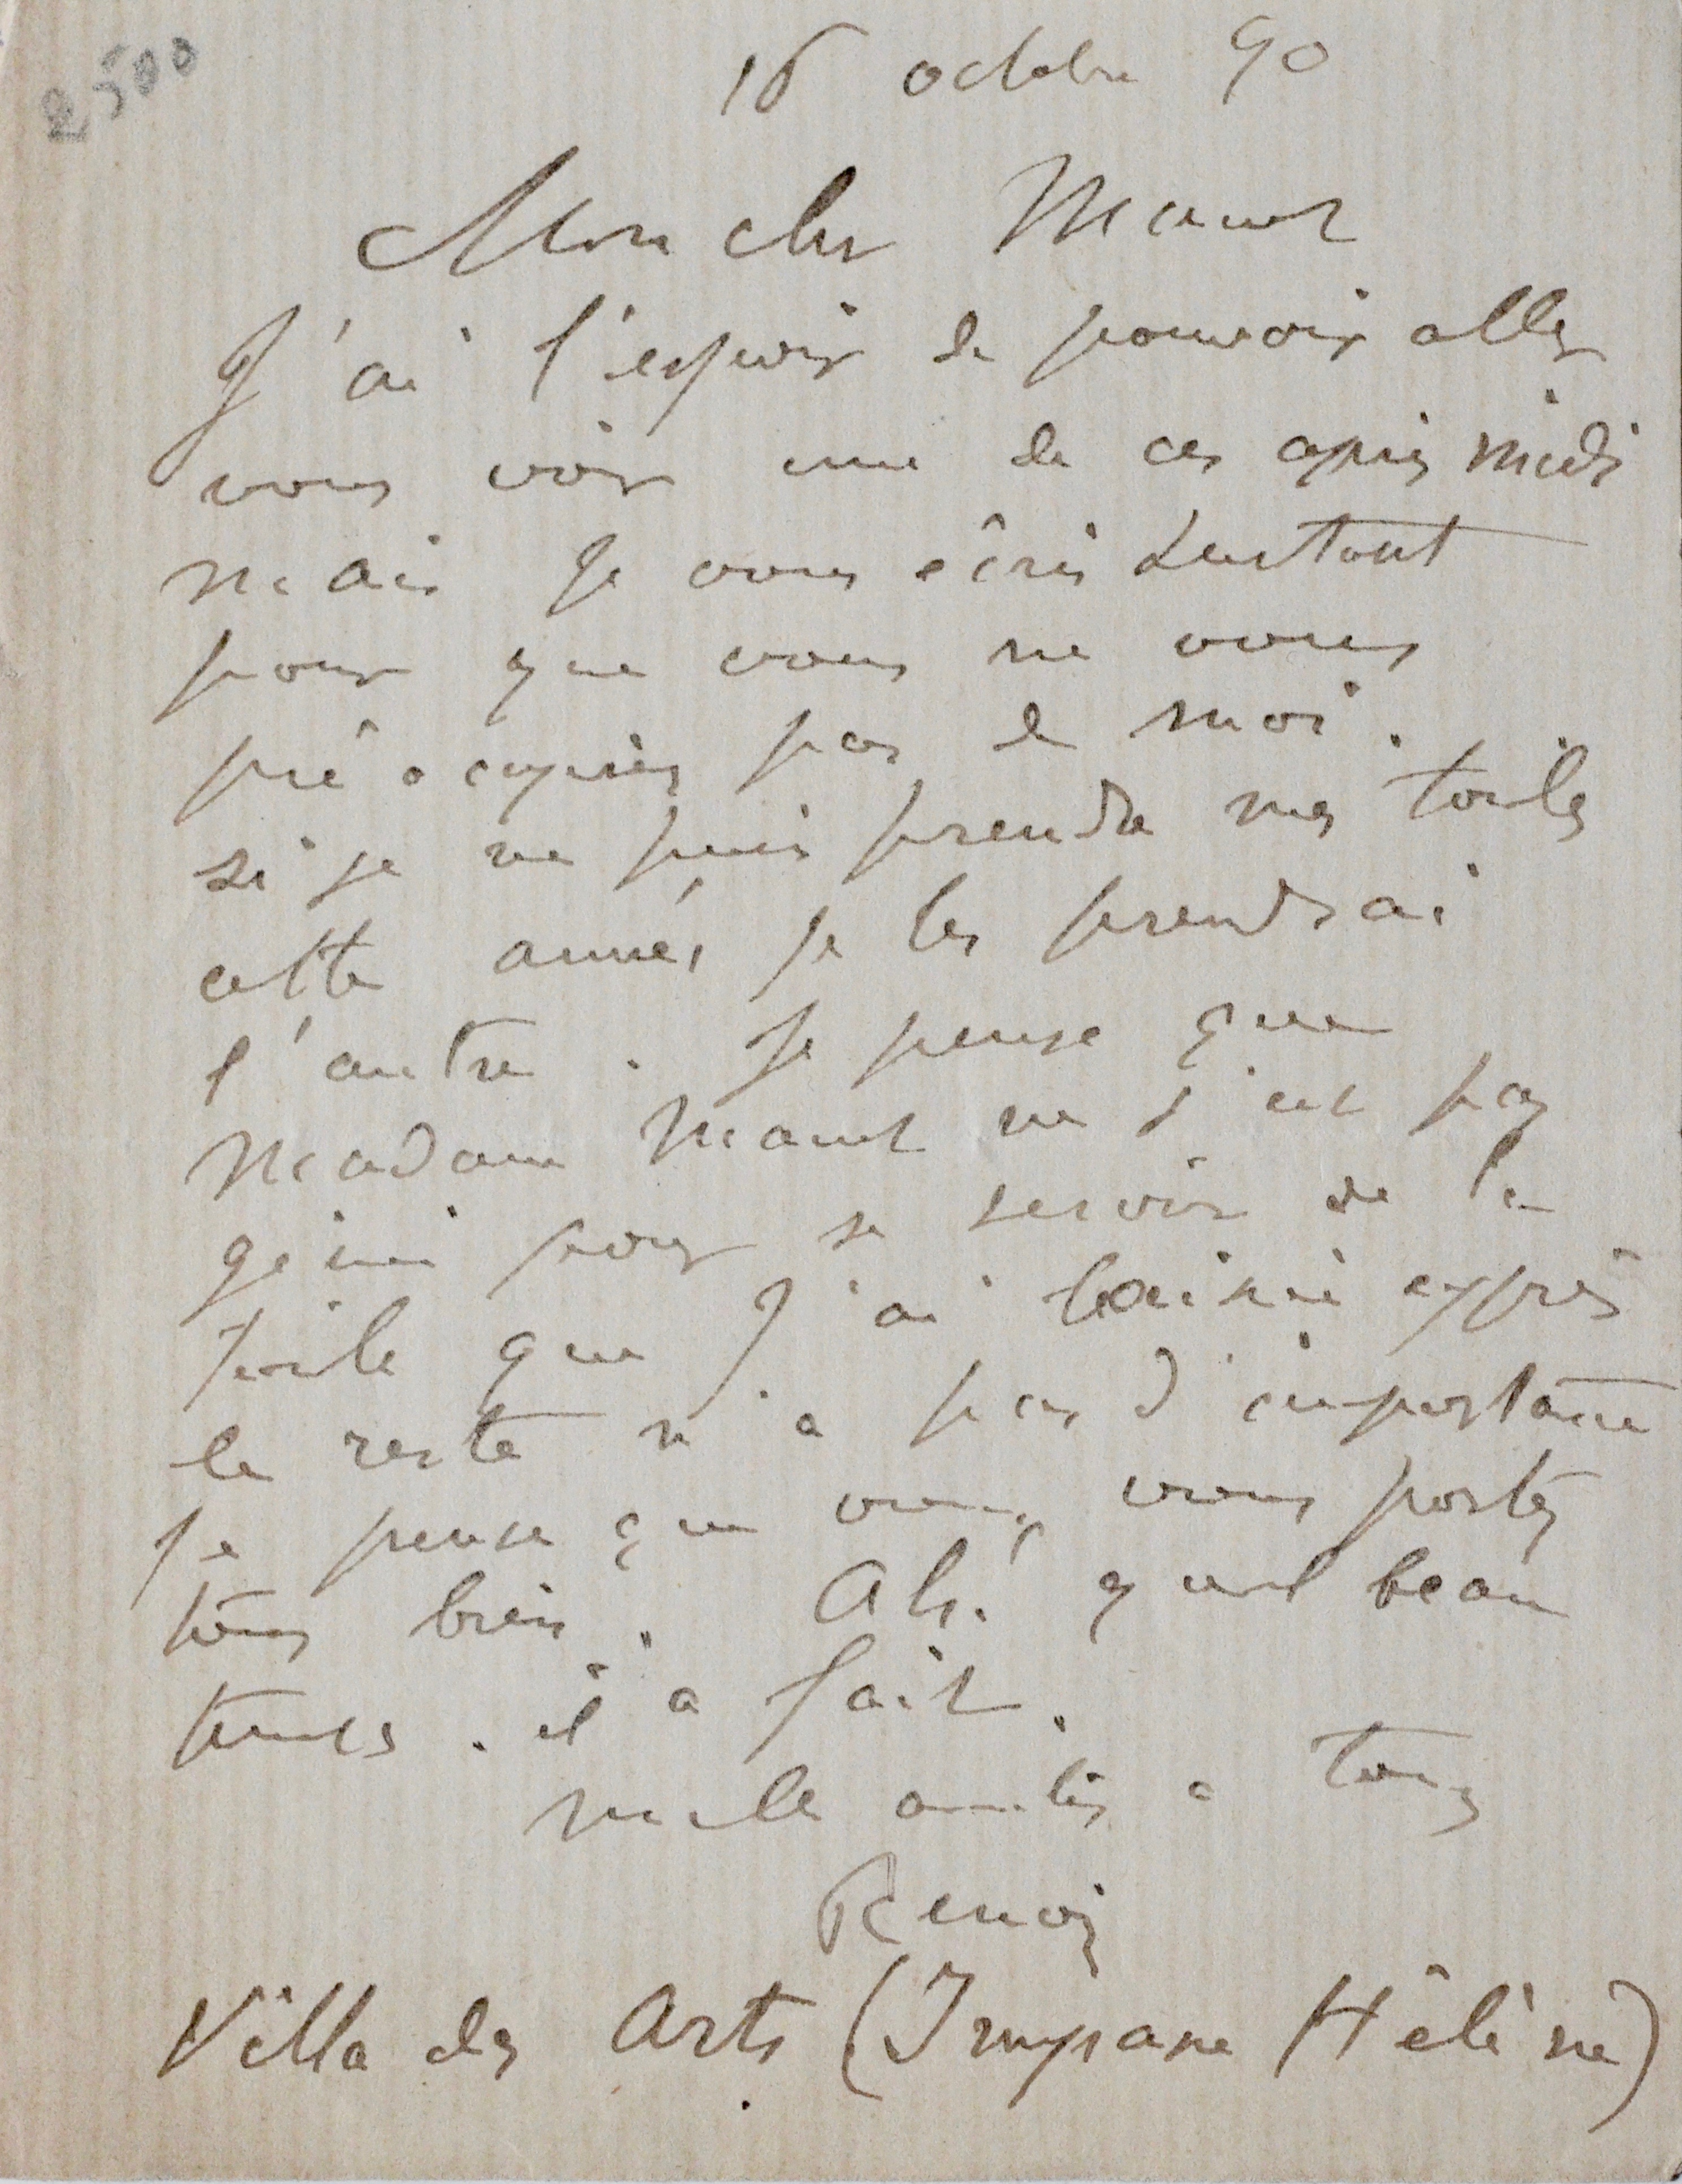 2500
16 octobre 90
Mon cher Manet
J'ai l'espoir de pouvoir aller
vous voir une de ces après midi
mais je vous écris surtout
pour que vous ne vous
préocupiez pas de moi.
si je ne puis prendre mes toiles
cette année je les prendrai
l'autre. Je pense que
Madame Manet ne s'est pas
gêné pour se servir de la
toile que J'ai laissée exprès
le reste n'a pas d'importance
je pense que vous vous portez
tous bien. Ah! quel beau
temps. il a fait.
mille amitiés a tous
Renoir
Villa des Arts (Impasse Hélène)